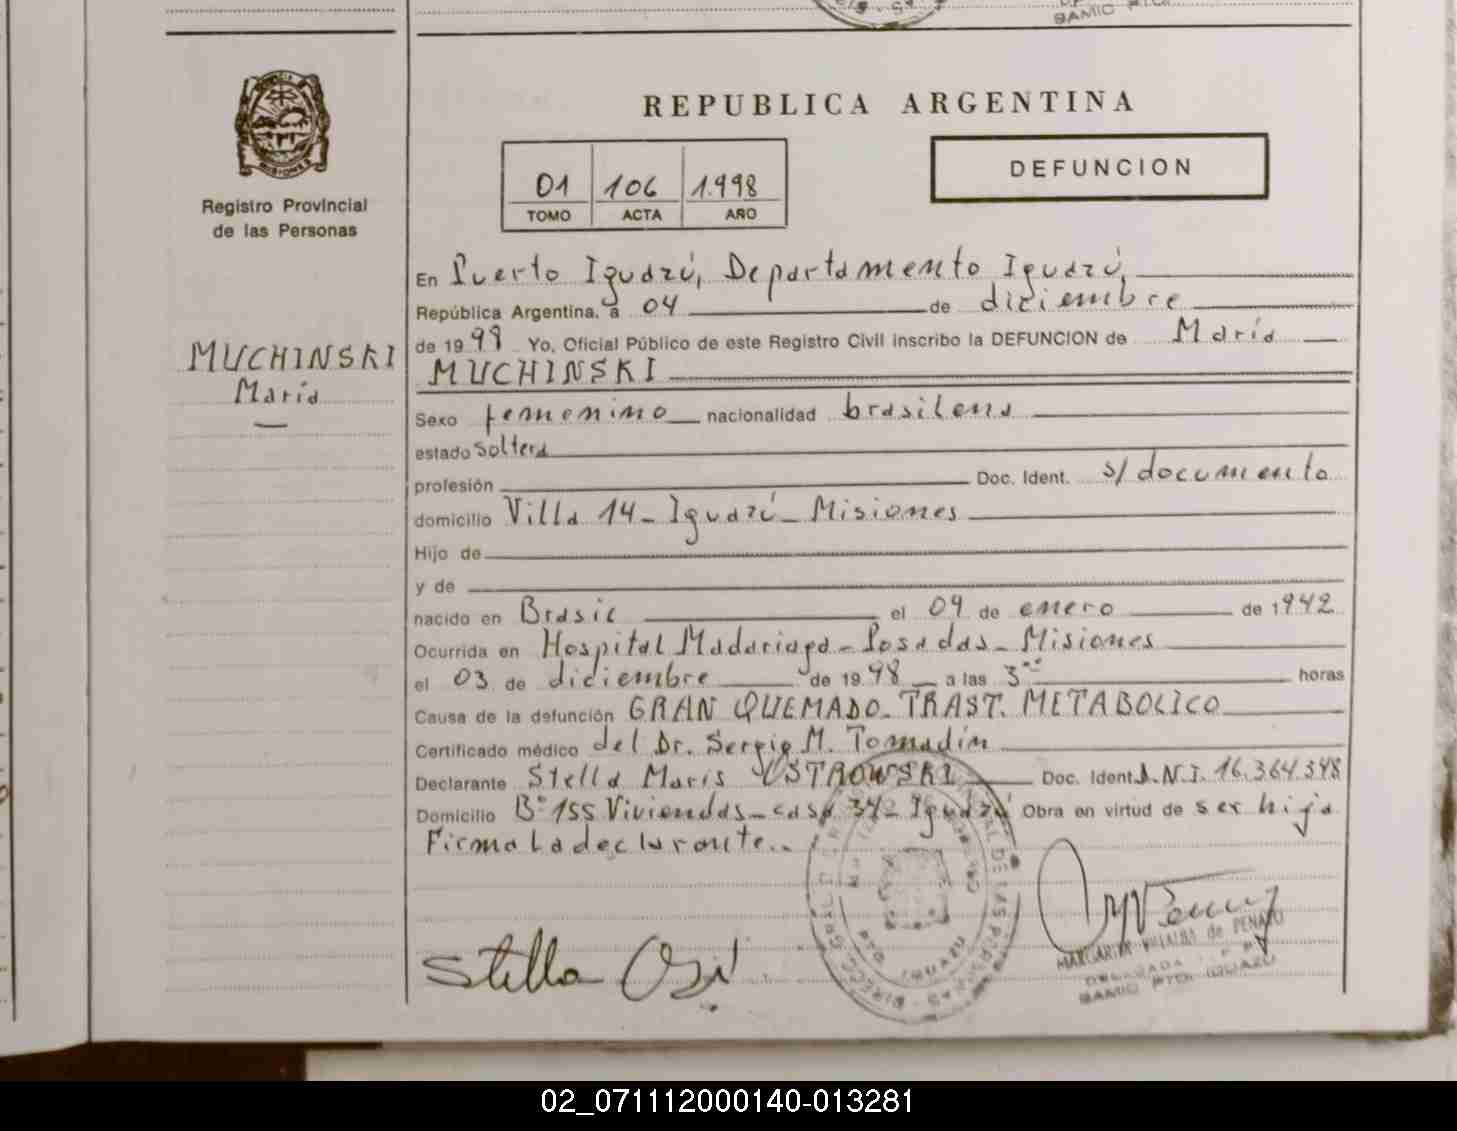 REPUBLICA ARGENTINA
DEFUNCION
01 106 1.998
TOMO ACTA AÑO
Registro Provincial
de las Personas
MUCHINSKI
María
En Puerto Iguazú, Departamento Iguazú,
República Argentina, a 04 de diciembre
de 1998 Yo, Oficial Público de este Registro Civil inscribo la DEFUNCION de María
MUCHINSKI
Sexo femenino nacionalidad brasilena
estado Soltera
profesión Doc. Ident. s/documento
domicilio Villa 14 - Iguazú - Misiones
Hijo de
y de
nacido en Brasil el 09 de enero de 1942
Ocurrida en Hospital Madariaga - Posadas - Misiones
el 03 de diciembre de 1998 a las 3 horas
Causa de la defunción GRAN QUEMADO - TRAST. METABOLICO
Certificado médico del Dr. Sergio M. Tomadin
Declarante Stella Maris OSTROWSKI Doc. Ident. D.N.I. 16.364.348
Domicilio B° 155 Viviendas - casa 34 - Iguazú Obra en virtud de ser hija
Firma La declarante..
Stella
MARGARITA VILLALBA de PENAYO
DELEGADA
SAMIC PTO. IGUAZU
02_071112000140-013281